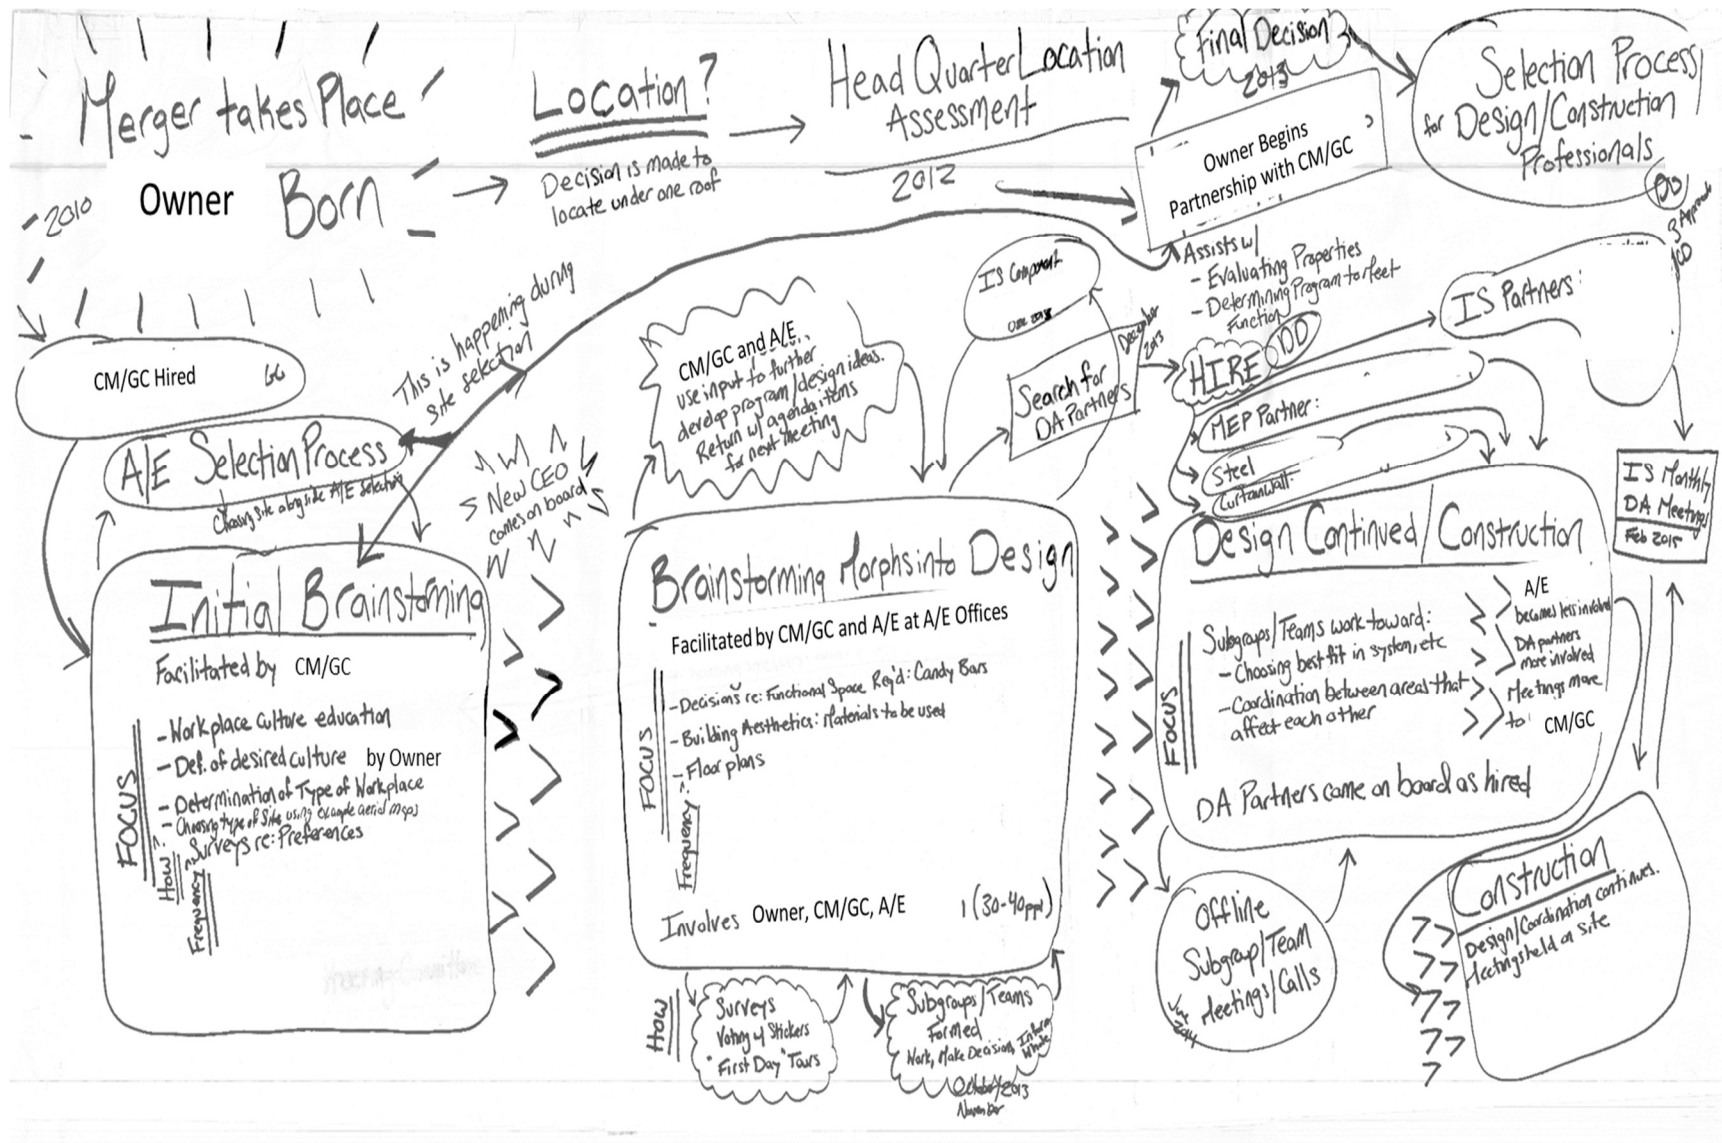 Merger takes Place
2010
Owner Born
Location?
Decision is made to
locate under one roof
Head Quarter Location
Assessment
2012
Final Decision
2013
Owner Begins
Partnership with CM/GC
Assists w/
- Evaluating Properties
- Determining Program to feet
Function
Selection Process
for Design/Construction
Professionals
3 Approach
IS Partners:
CM/GC Hired
GC
A/E Selection Process
Choosing site alongside A/E Selection
This is happening during
site selection
New CEO
comes on board
CM/GC and A/E
use input to further
develop program/design ideas.
Return w/ agenda items
for next meeting
IS Component
Search for
DA Partners
December
2013
HIRE
MEP Partner:
Steel
Curtainwall:
IS Monthly
DA Meetings
Feb 2015
Initial Brainstorming
Facilitated by CM/GC
FOCUS
- Workplace culture education
- Def. of desired culture by Owner
- Determination of Type of Workplace
- Choosing type of Site using example aerial maps
How?
- Surveys re: Preferences
Frequency
Brainstorming Morphs into Design
Facilitated by CM/GC and A/E at A/E Offices
FOCUS
- Decisions re: Functional Space Req'd: Candy Bars
- Building Aesthetics: Materials to be used
- Floor plans
Frequency:
Involves Owner, CM/GC, A/E (30-40ppl)
HOW
Surveys
Voting w/ Stickers
"First Day" Tours
Subgroups/Teams
Formed
Work, Make Decision, Inform
Whole
October 2013
November
Design Continued/Construction
FOCUS
Subgroups/Teams work toward:
- Choosing best fit in system, etc
- Coordination between areas that
affect each other
A/E
becomes less involved
DA partners
more involved
Meetings move
to CM/GC
DA Partners come on board as hired
Offline
Subgroup/Team
Meetings/Calls
2014
Construction
Design/Coordination continues.
Meetings held on site